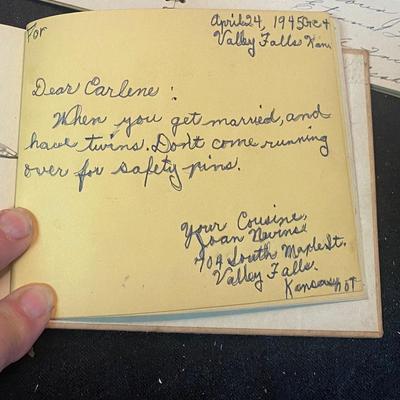 For
April 24, 1945
Valley Falls Kans
Dear Carlene:
When you get married, and
have twins. Don't come running
over for safety pins.
Your Cousine,
Joan Nevins
404 South Maple St.
Valley Falls.
Kansas